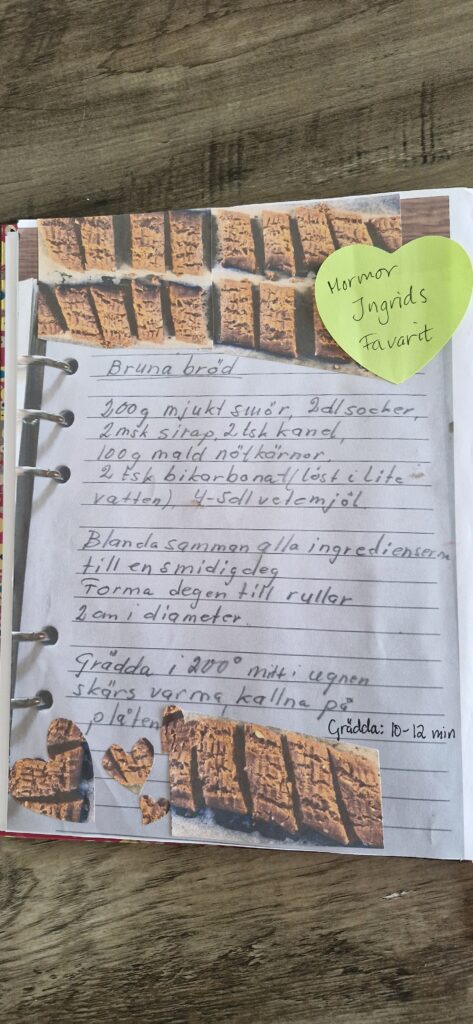 Mormor
Ingrids
Favorit
Bruna bröd
200g mjukt smör, 2dl socker,
2msk sirap, 2 tsk kanel,
100g mald nötkärnor,
2 tsk bikarbonat (löst i lite
vatten), 4-5dl vetemjöl.
Blanda samman alla ingredienserna
till en smidig deg
Forma degen till rullar
2cm i diameter.
Grädda i 200° mitt i ugnen
skärs varma, kallna på
plåten
Grädda: 10-12 min